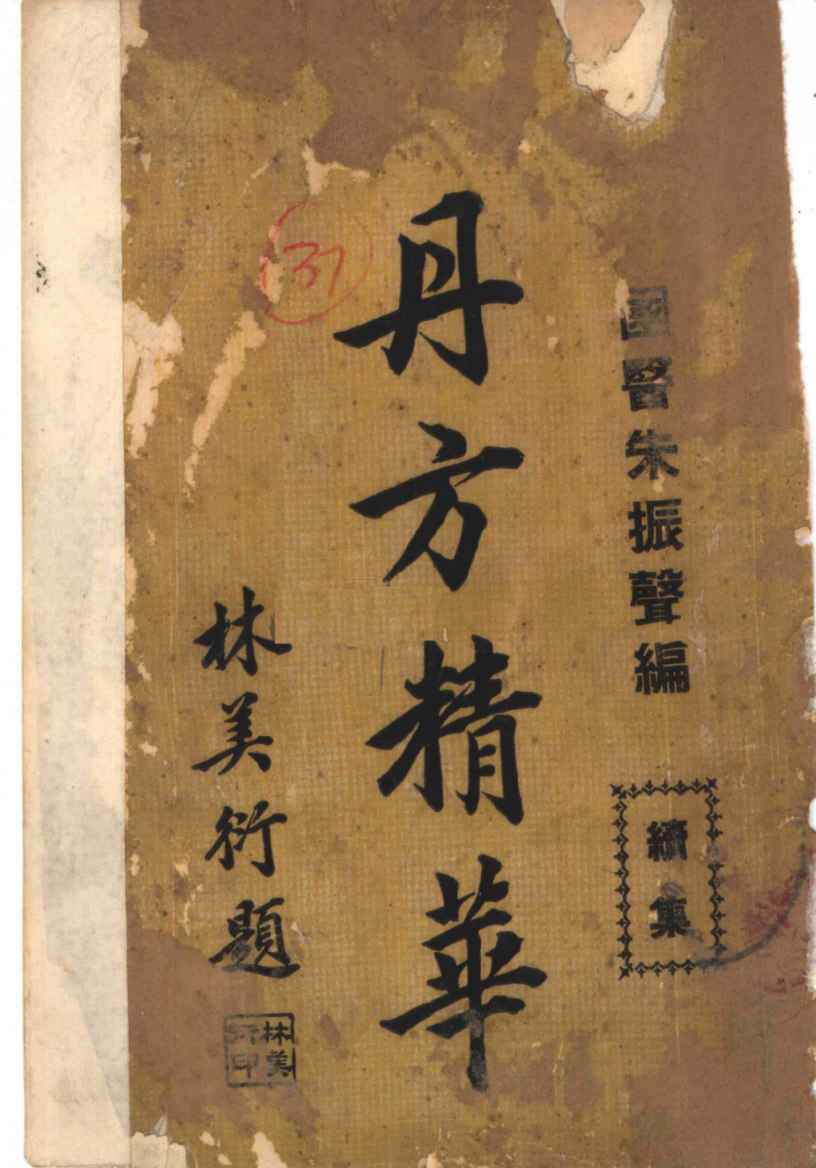 國醫朱振聲編
續集
丹方精華
林美衍題
林美
衍印
31